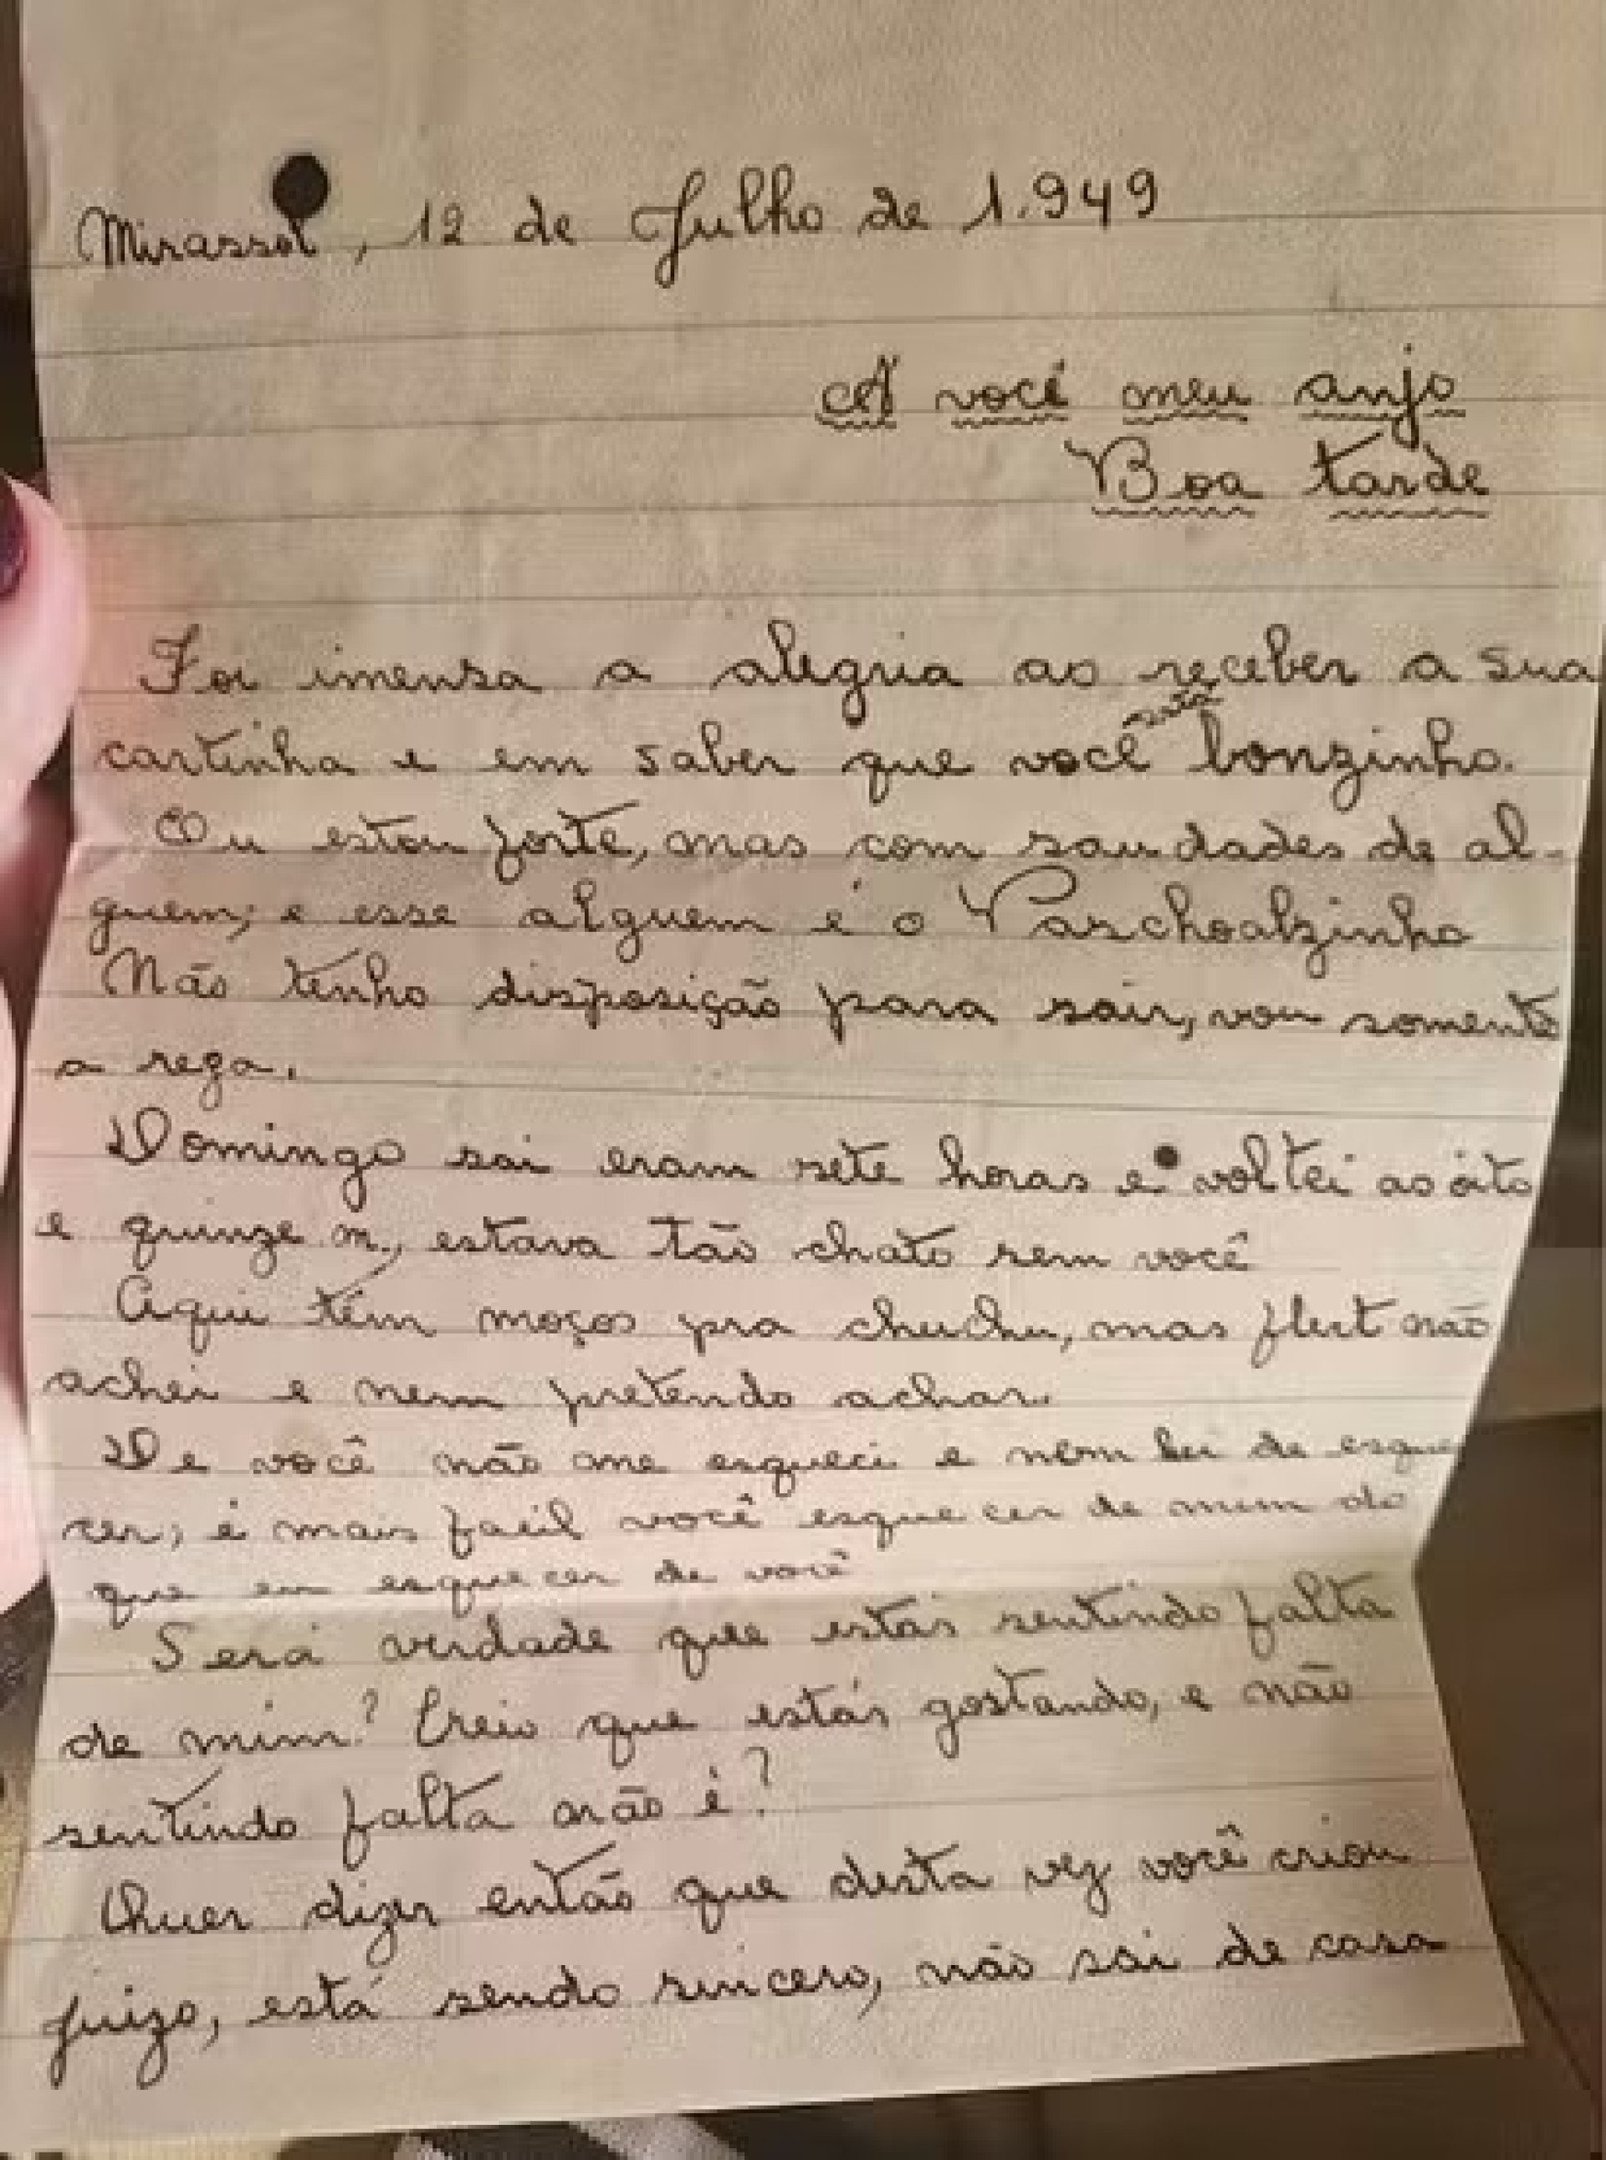 Mirassol, 12 de Julho de 1.949
A você meu anjo
Boa tarde
Foi imensa a alegria ao receber a sua
cartinha e em saber que você está bonzinho.
Eu estou forte, mas com saudades de al-
guem; e esse alguem é o Paschoalzinho
Não tenho disposição para sair, vou somente
a reza.
Domingo sai eram sete horas e voltei as oito
e quinze m., estava tão chato sem você
Aqui têm moços pra chuchu, mas flert não
achei e nem pretendo achar.
De você não me esqueci e nem hei de esque
cer; é mais facil você esquecer de mim do
que eu esquecer de você
Será verdade que estás sentindo falta
de mim? Creio que estás gostando, e não
sentindo falta não é?
Quer dizer então que desta vez você criou
juizo, está sendo sincero, não sai de casa